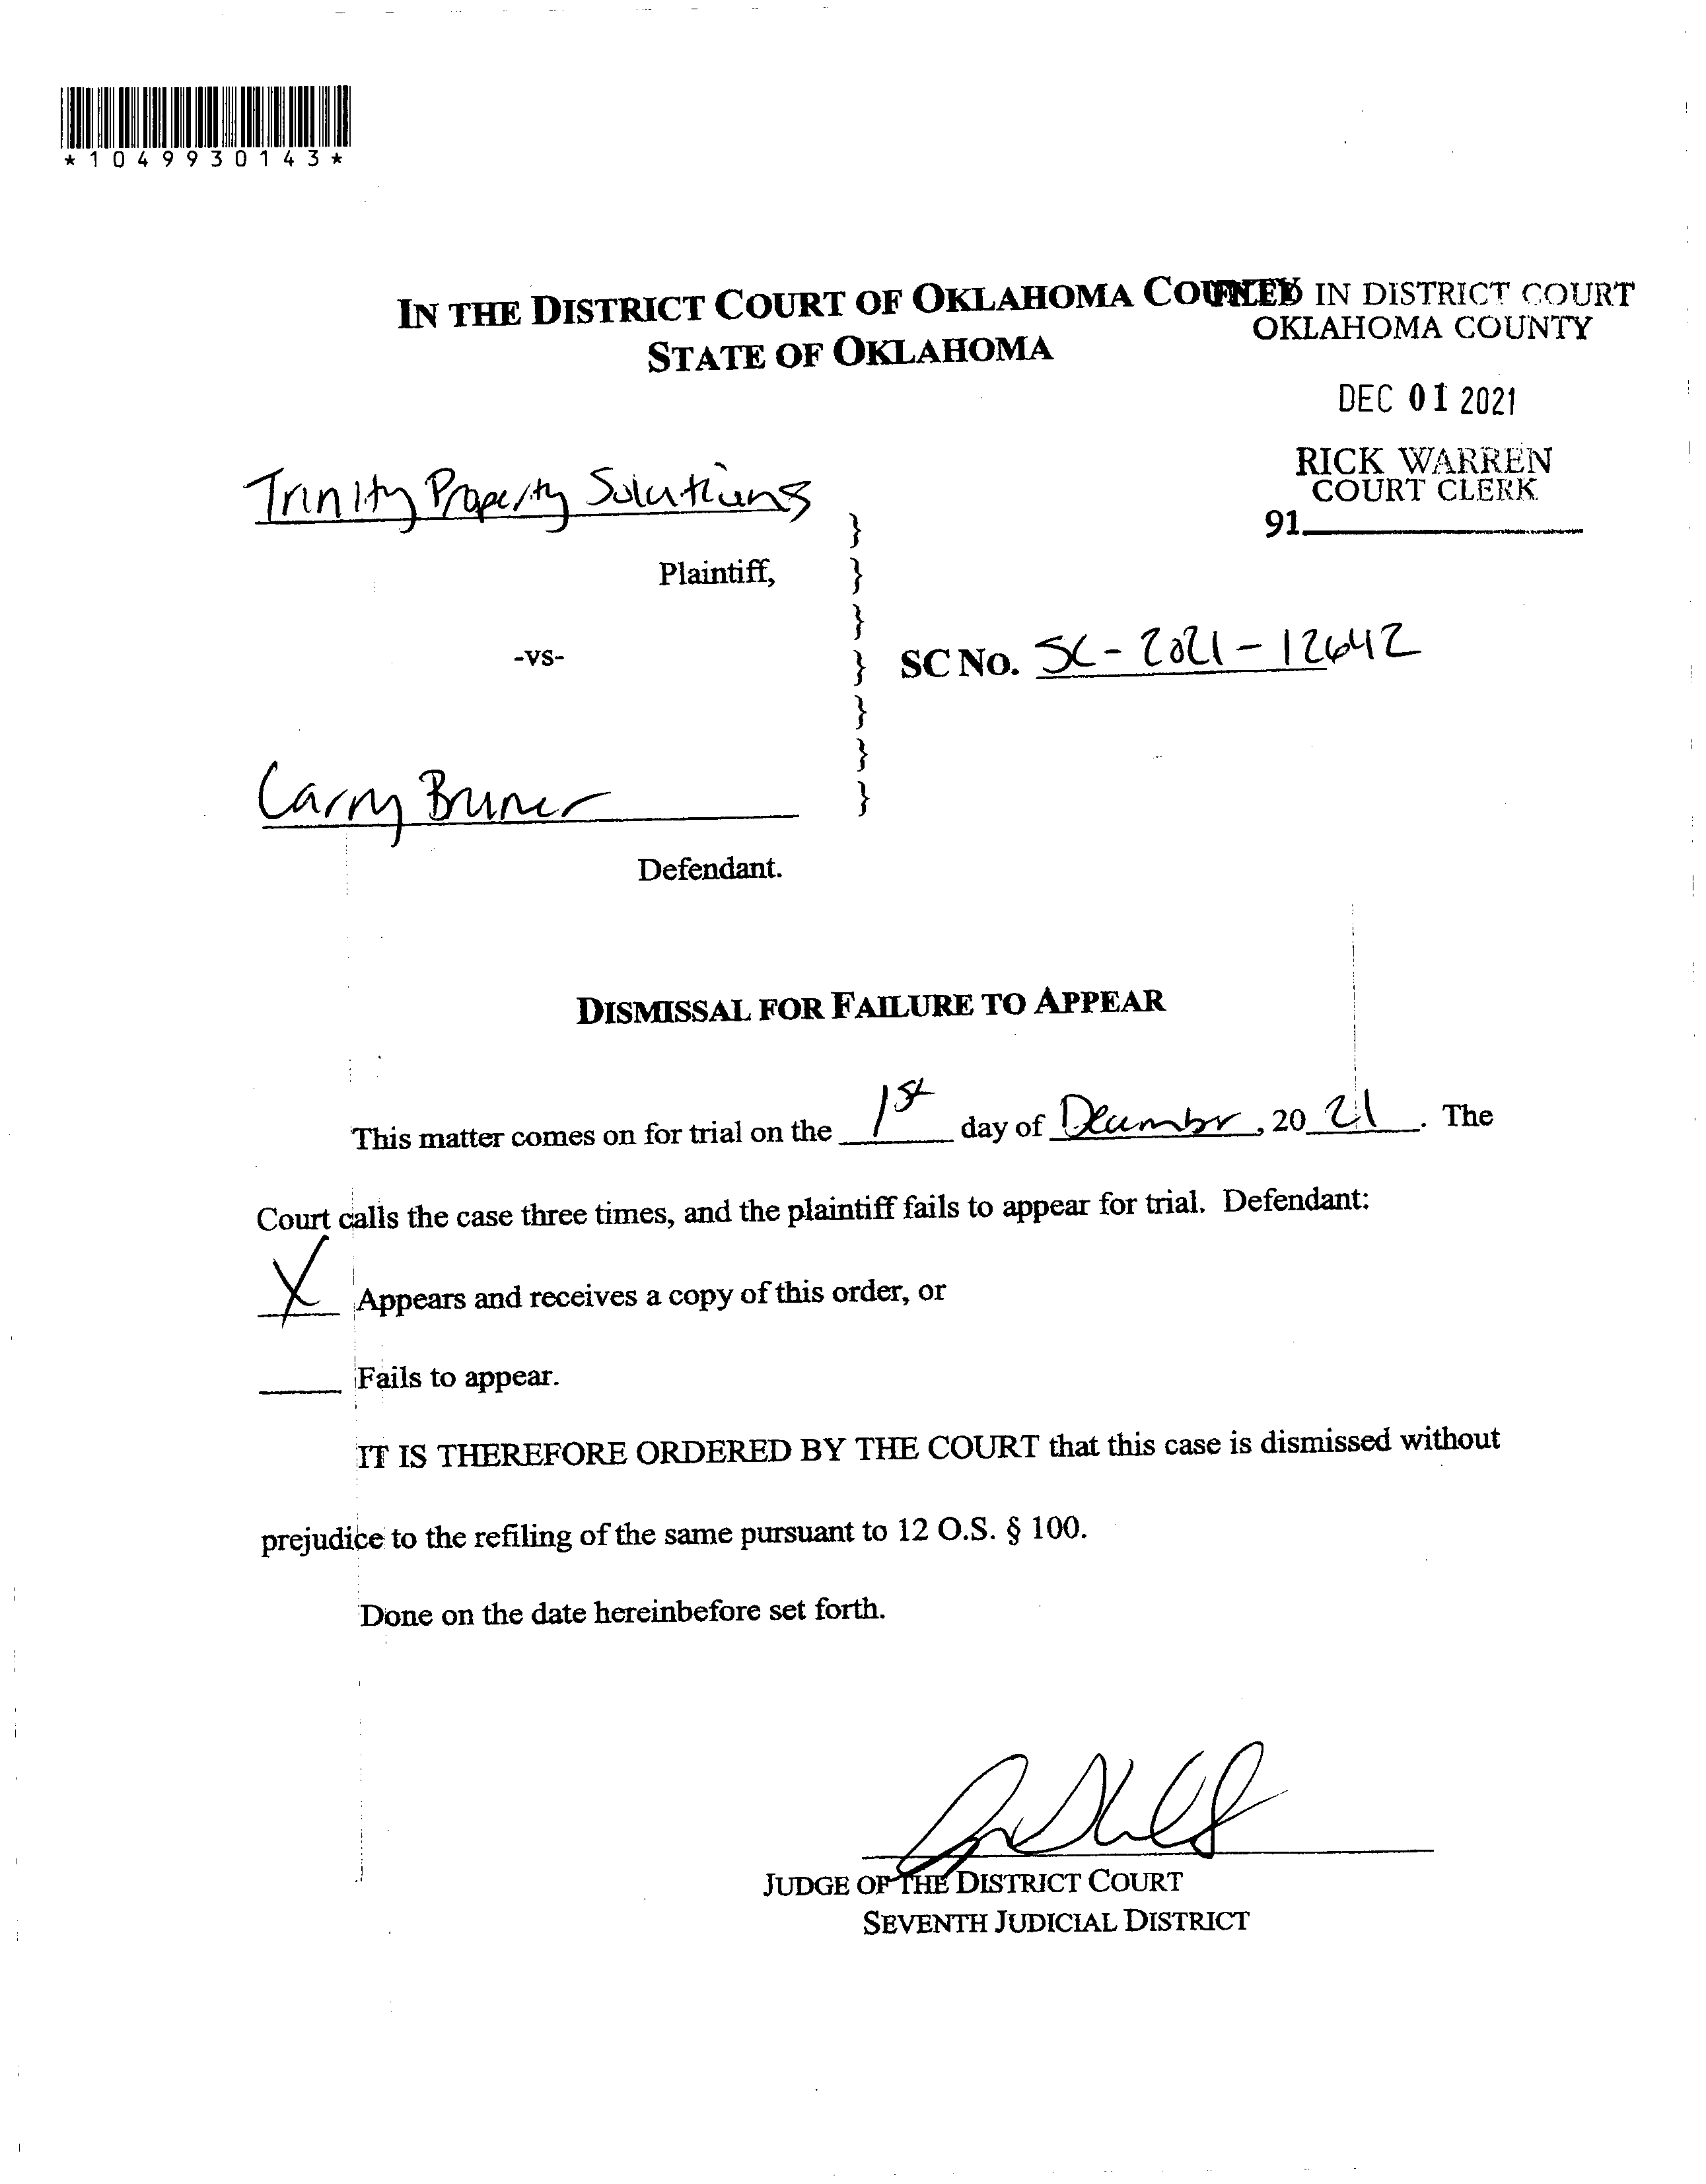 *1049930143*
IN THE DISTRICT COURT OF OKLAHOMA COUNTY
STATE OF OKLAHOMA
FILED IN DISTRICT COURT
OKLAHOMA COUNTY
DEC 01 2021
RICK WARREN
COURT CLERK
91
Trinity Property Solutions
Plaintiff,
-vs-
SC No. SC-2021-12642
Bruner
Defendant.
DISMISSAL FOR FAILURE TO APPEAR
This matter comes on for trial on the 1st day of December, 20 21. The
Court calls the case three times, and the plaintiff fails to appear for trial. Defendant:
X Appears and receives a copy of this order, or
Fails to appear.
IT IS THEREFORE ORDERED BY THE COURT that this case is dismissed without
prejudice to the refiling of the same pursuant to 12 O.S. § 100.
Done on the date hereinbefore set forth.
JUDGE OF THE DISTRICT COURT
SEVENTH JUDICIAL DISTRICT